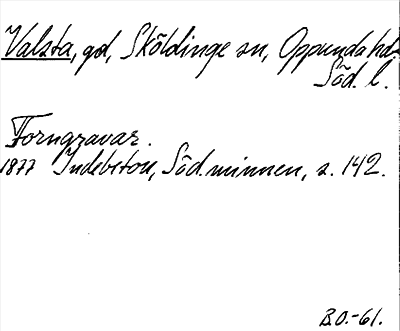 Valsta, gd, Sköldinge sn, Oppunda hd,
Söd. l.
Forngravar.
1877 Indebetou, Söd. minnen, s. 142.
B.O.-61.